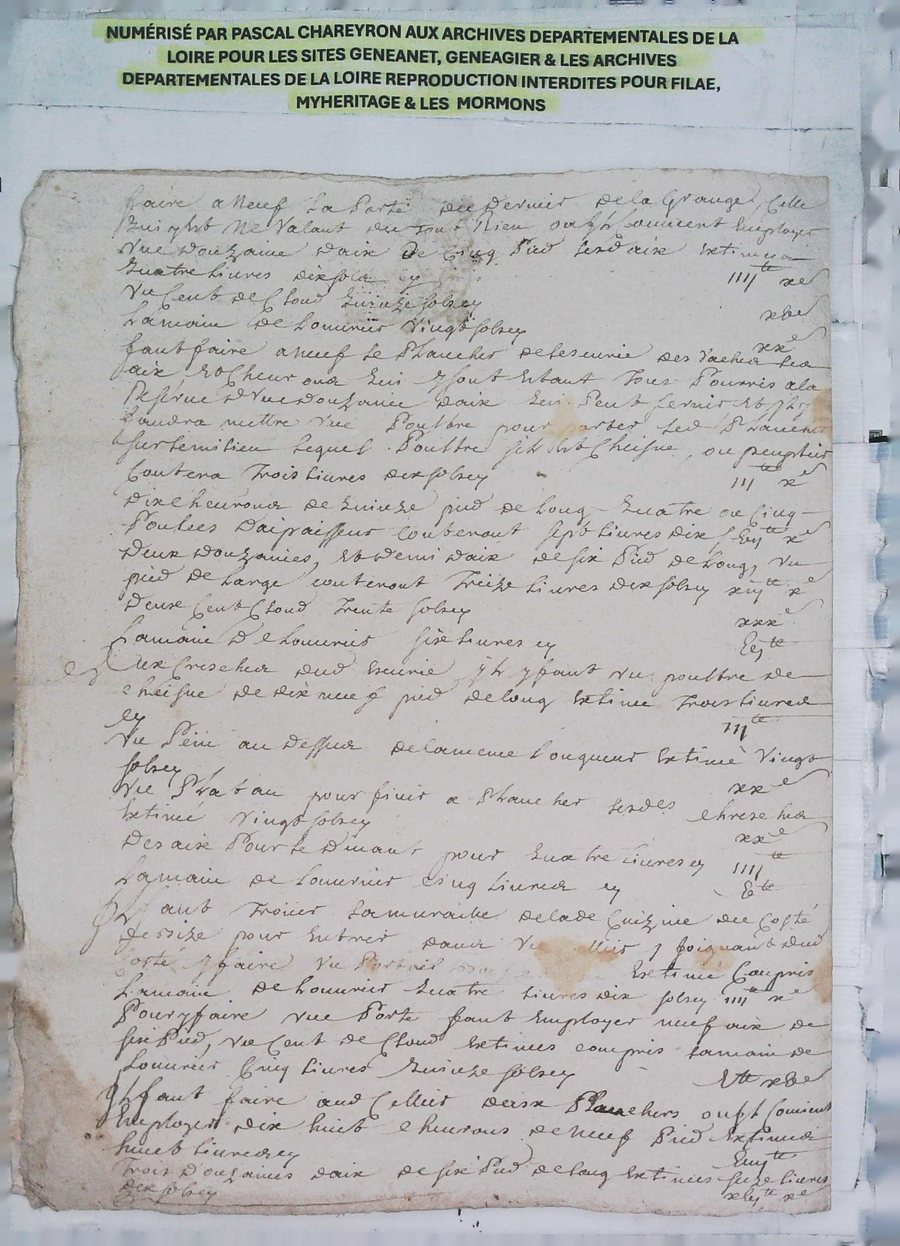 NUMÉRISÉ PAR PASCAL CHAREYRON AUX ARCHIVES DEPARTEMENTALES DE LA
LOIRE POUR LES SITES GENEANET, GENEAGIER & LES ARCHIVES
DEPARTEMENTALES DE LA LOIRE REPRODUCTION INTERDITES POUR FILAE,
MYHERITAGE & LES MORMONS
faire a Neuf La Porte du Dernier de la Grange, Celle
Ne Valant du tout Rien ou Il Convient Employer
Vne Douzaine d'aix De Cinq Pied Lesd aix Extimes
Quatre Livres dix sols cy iiij tt x s
Vn Cent de Cloud Quinze sols cy xv s
La main de Louvrier Vingt sols cy xx s
faut faire a neuf le Plancher de Lescurie des Vaches les
aix et Cheurons qui y sont Estant Tous Pourris a la
Reserue d'Vne douzaine daix qui Peut seruir Et
faudra mettre Vne Pouttre pour porter Led Plancher
sur Le milieu Lequel Pouttre Chaisne, ou peuplier
Coutera Trois Liures dix sols cy iij tt x s
Dix Cheurons de Quinze pied de Long Quatre ou Cinq
Poulces D'aipaisseur Couteront sept Liures dix s vij tt x s
Deux Douzaines, et Demi Daix de six Pied de Long, Vn
pied de Large couteront Treize Liures dix sols cy xiij tt x s
Deux Cent Cloud Trente sols cy xxx s
La main De Louurier six Liures cy vj tt
Aux Creseches dud Escurie Il y faut Vn pouttre de
chaisne de dix neuf pied de long Extimé Trois Liures
cy iij tt
Vn au Dessus de la meme Longueur Extimé Vingt
sols cy xx s
Vn Plateau pour finir a Plancher Lesdes chreseches
Extimé Vingt sols cy xx s
Des aix Pour Le Deuant pour Quatre Liures cy iiij tt
La main de Louurier Cinq Liures cy v tt
Il faut Troüer La muraille de lade Cuizine du Costé
de pour Entrer dans Vn Cellier y Joignant dud
Costé y faire Vn Portail Extimé Compris
La main de Louurier Quatre Liures dix sols cy iiij tt x s
Pour y faire vne Porte faut Employer neuf aix de
six Pied, vn Cent de Cloud Extimes compris La main de
Louurier Cinq Liures Quinze sols cy v tt xv s
Il faut faire aud Cellier deux Planchers ou Il Conuient
Employer dix huit cheurons de neuf Pied Extimés
huit Liures cy viij tt
Trois Douzaines daix de six Pied de long Extimés seize Liures
dix sols cy xvj tt x s